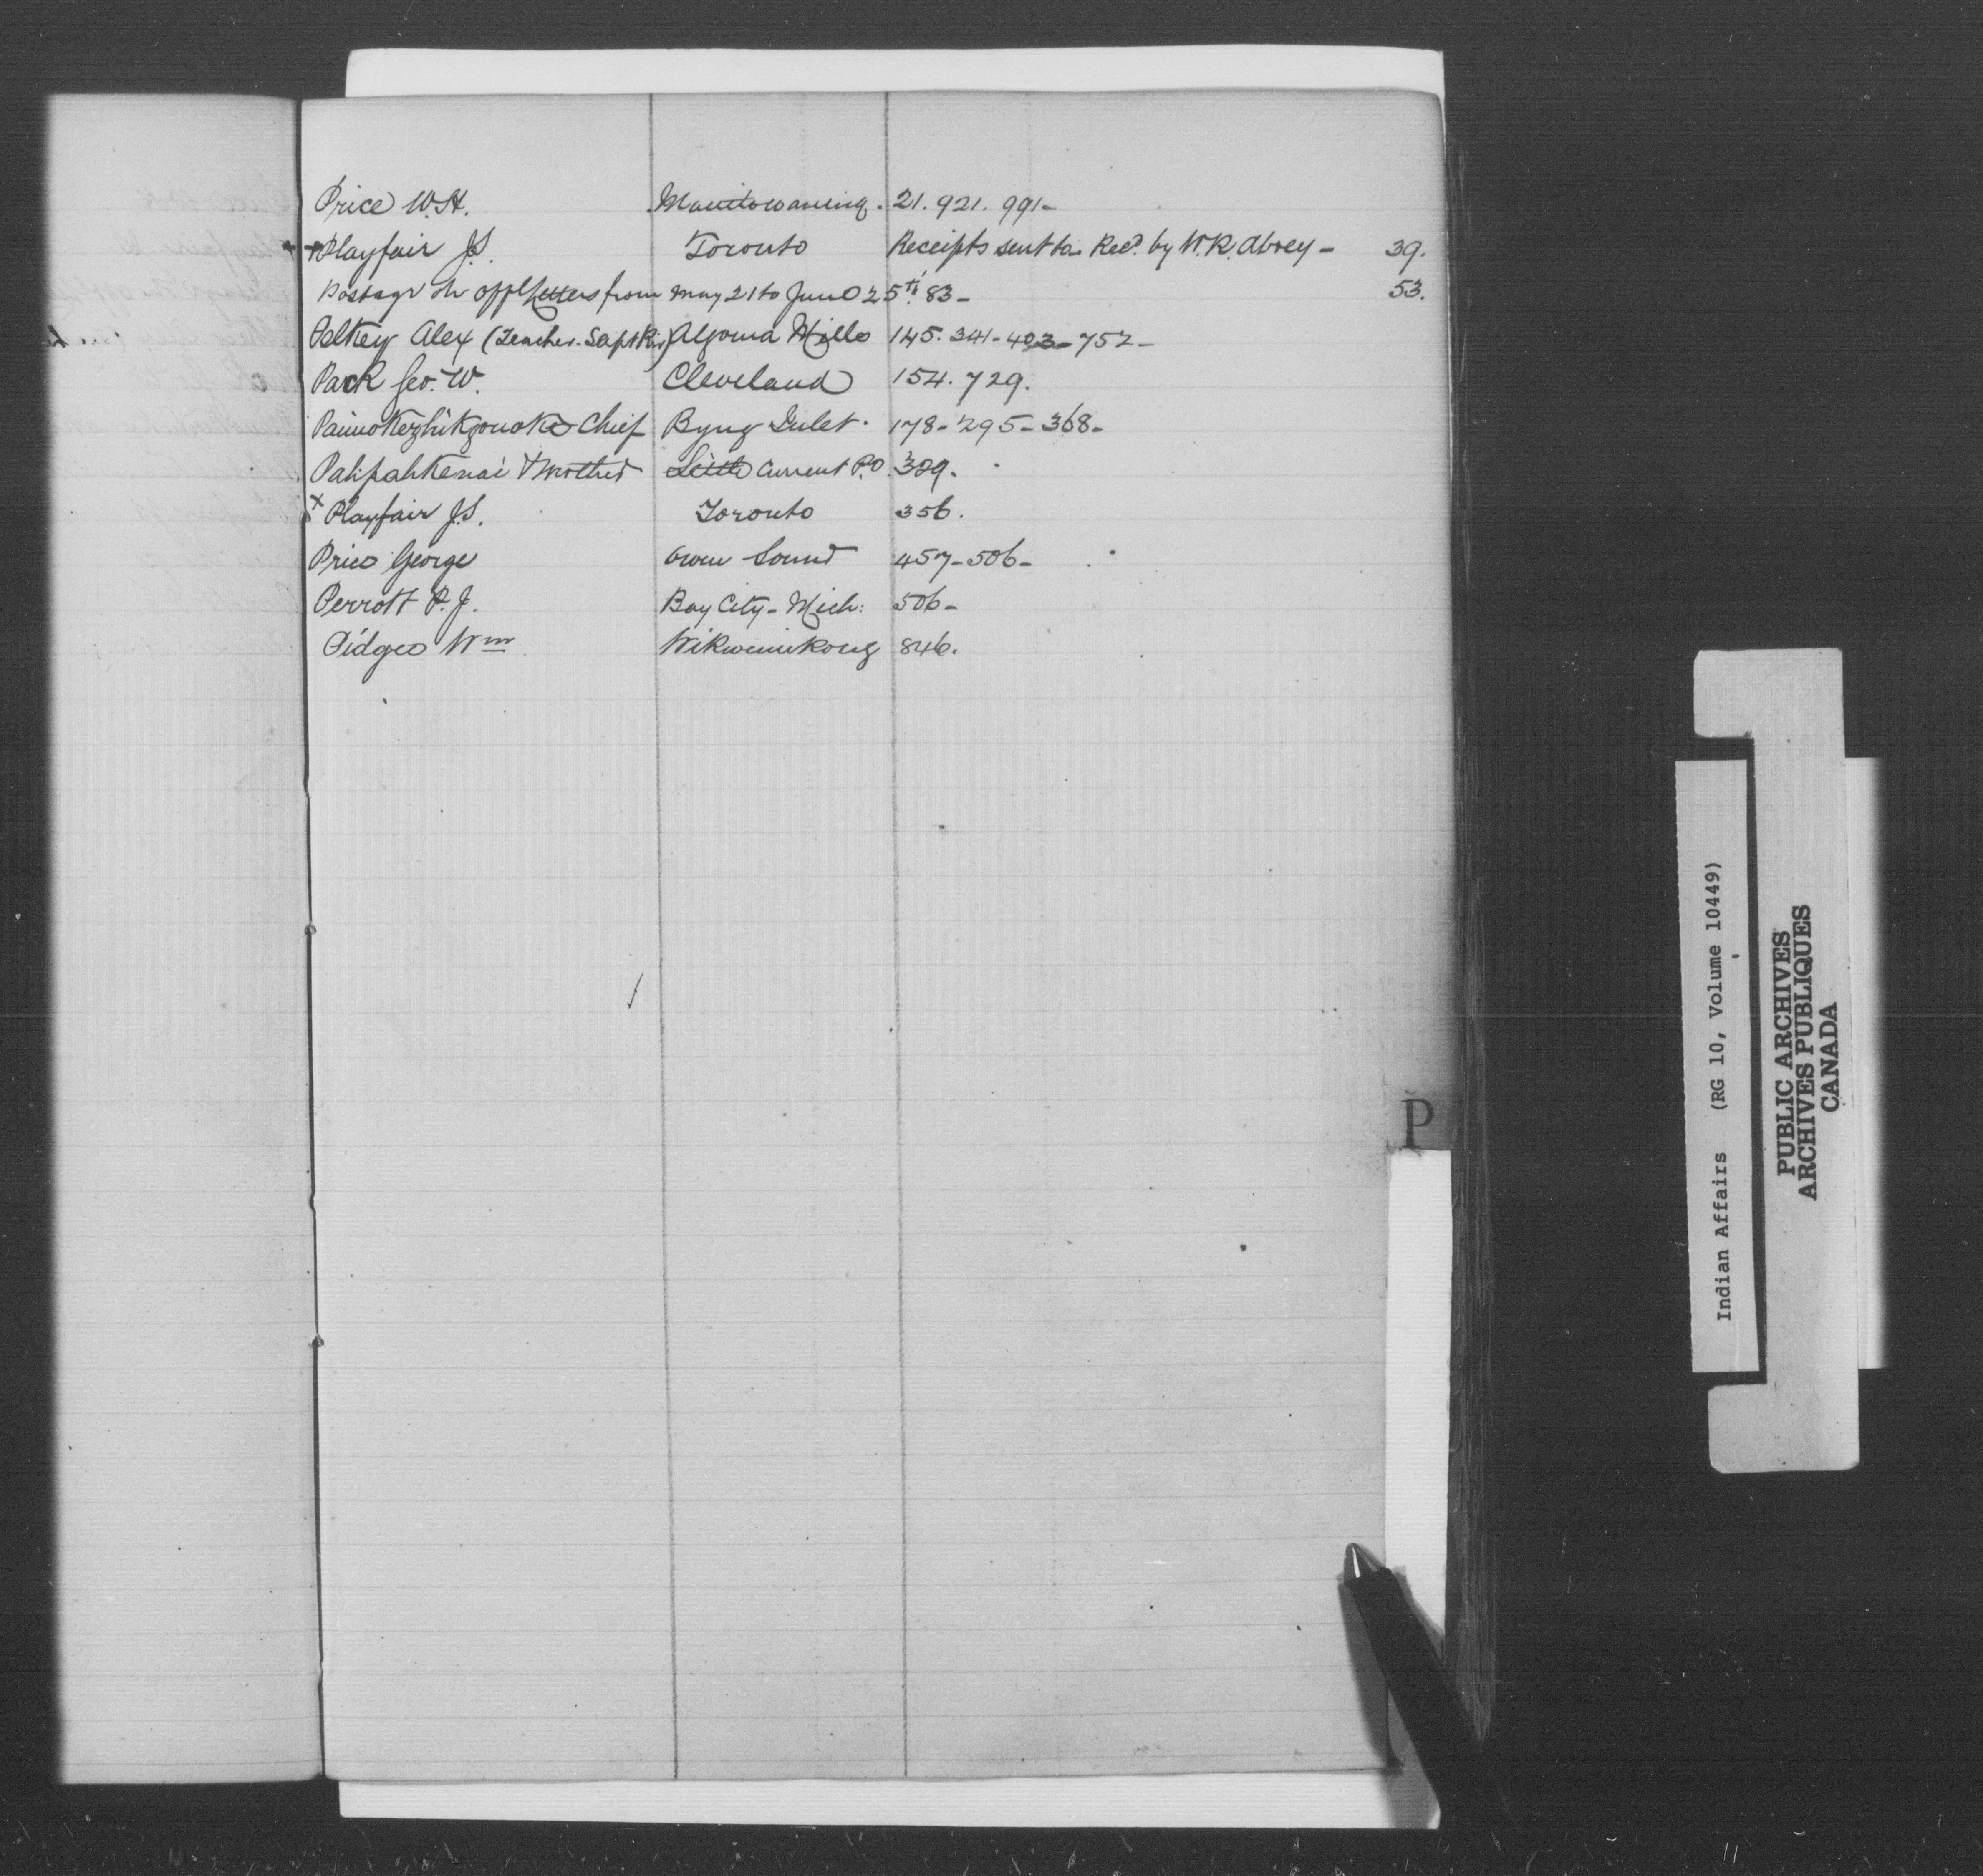 Price W.H. Manitowaning. 21. 921. 991-
+ Playfair J.S. Toronto Receipts sent to- Recd. by W.R. Abrey - 39.
Postage on offl letters from May 21 to June 25th 83- 53.
Pelkey Alex (Teacher. Algoma Mills 145. 341- 403- 752-
Pack Geo. W. Cleveland 154. 729.
Chief Byng Inlet. 178- 295- 368-
Pahpahkenai & Mother Little Current P.O. 329.
+ Playfair J.S. Toronto 356.
Price George Owen Sound 457- 506-
Perrott P.J. Bay City- Mich: 506-
Pidgeo Wm Wikwemikong 846.
P
Indian Affairs (RG 10, Volume 10449)
PUBLIC ARCHIVES
ARCHIVES PUBLIQUES
CANADA